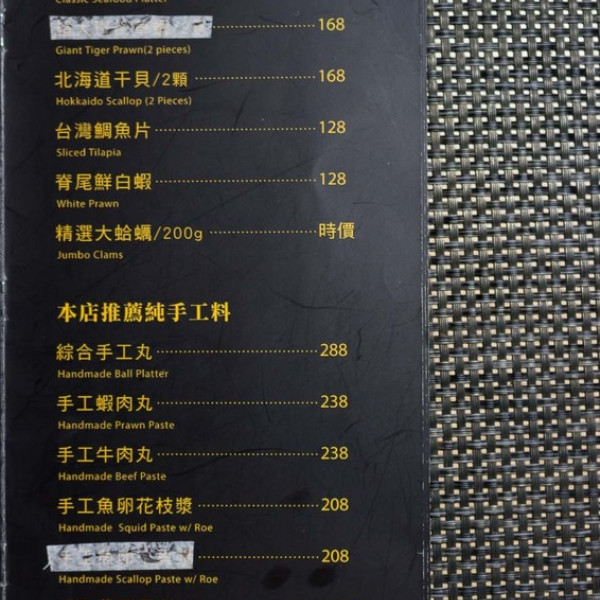 Classic Seafood Platter
168
Giant Tiger Prawn(2 pieces)
北海道干貝/2顆 168
Hokkaido Scallop (2 Pieces)
台灣鯛魚片 128
Sliced Tilapia
脊尾鮮白蝦 128
White Prawn
精選大蛤蠣/200g 時價
Jumbo Clams
本店推薦純手工料
綜合手工丸 288
Handmade Ball Platter
手工蝦肉丸 238
Handmade Prawn Paste
手工牛肉丸 238
Handmade Beef Paste
手工魚卵花枝漿 208
Handmade Squid Paste w/ Roe
208
Handmade Scallop Paste w/ Roe